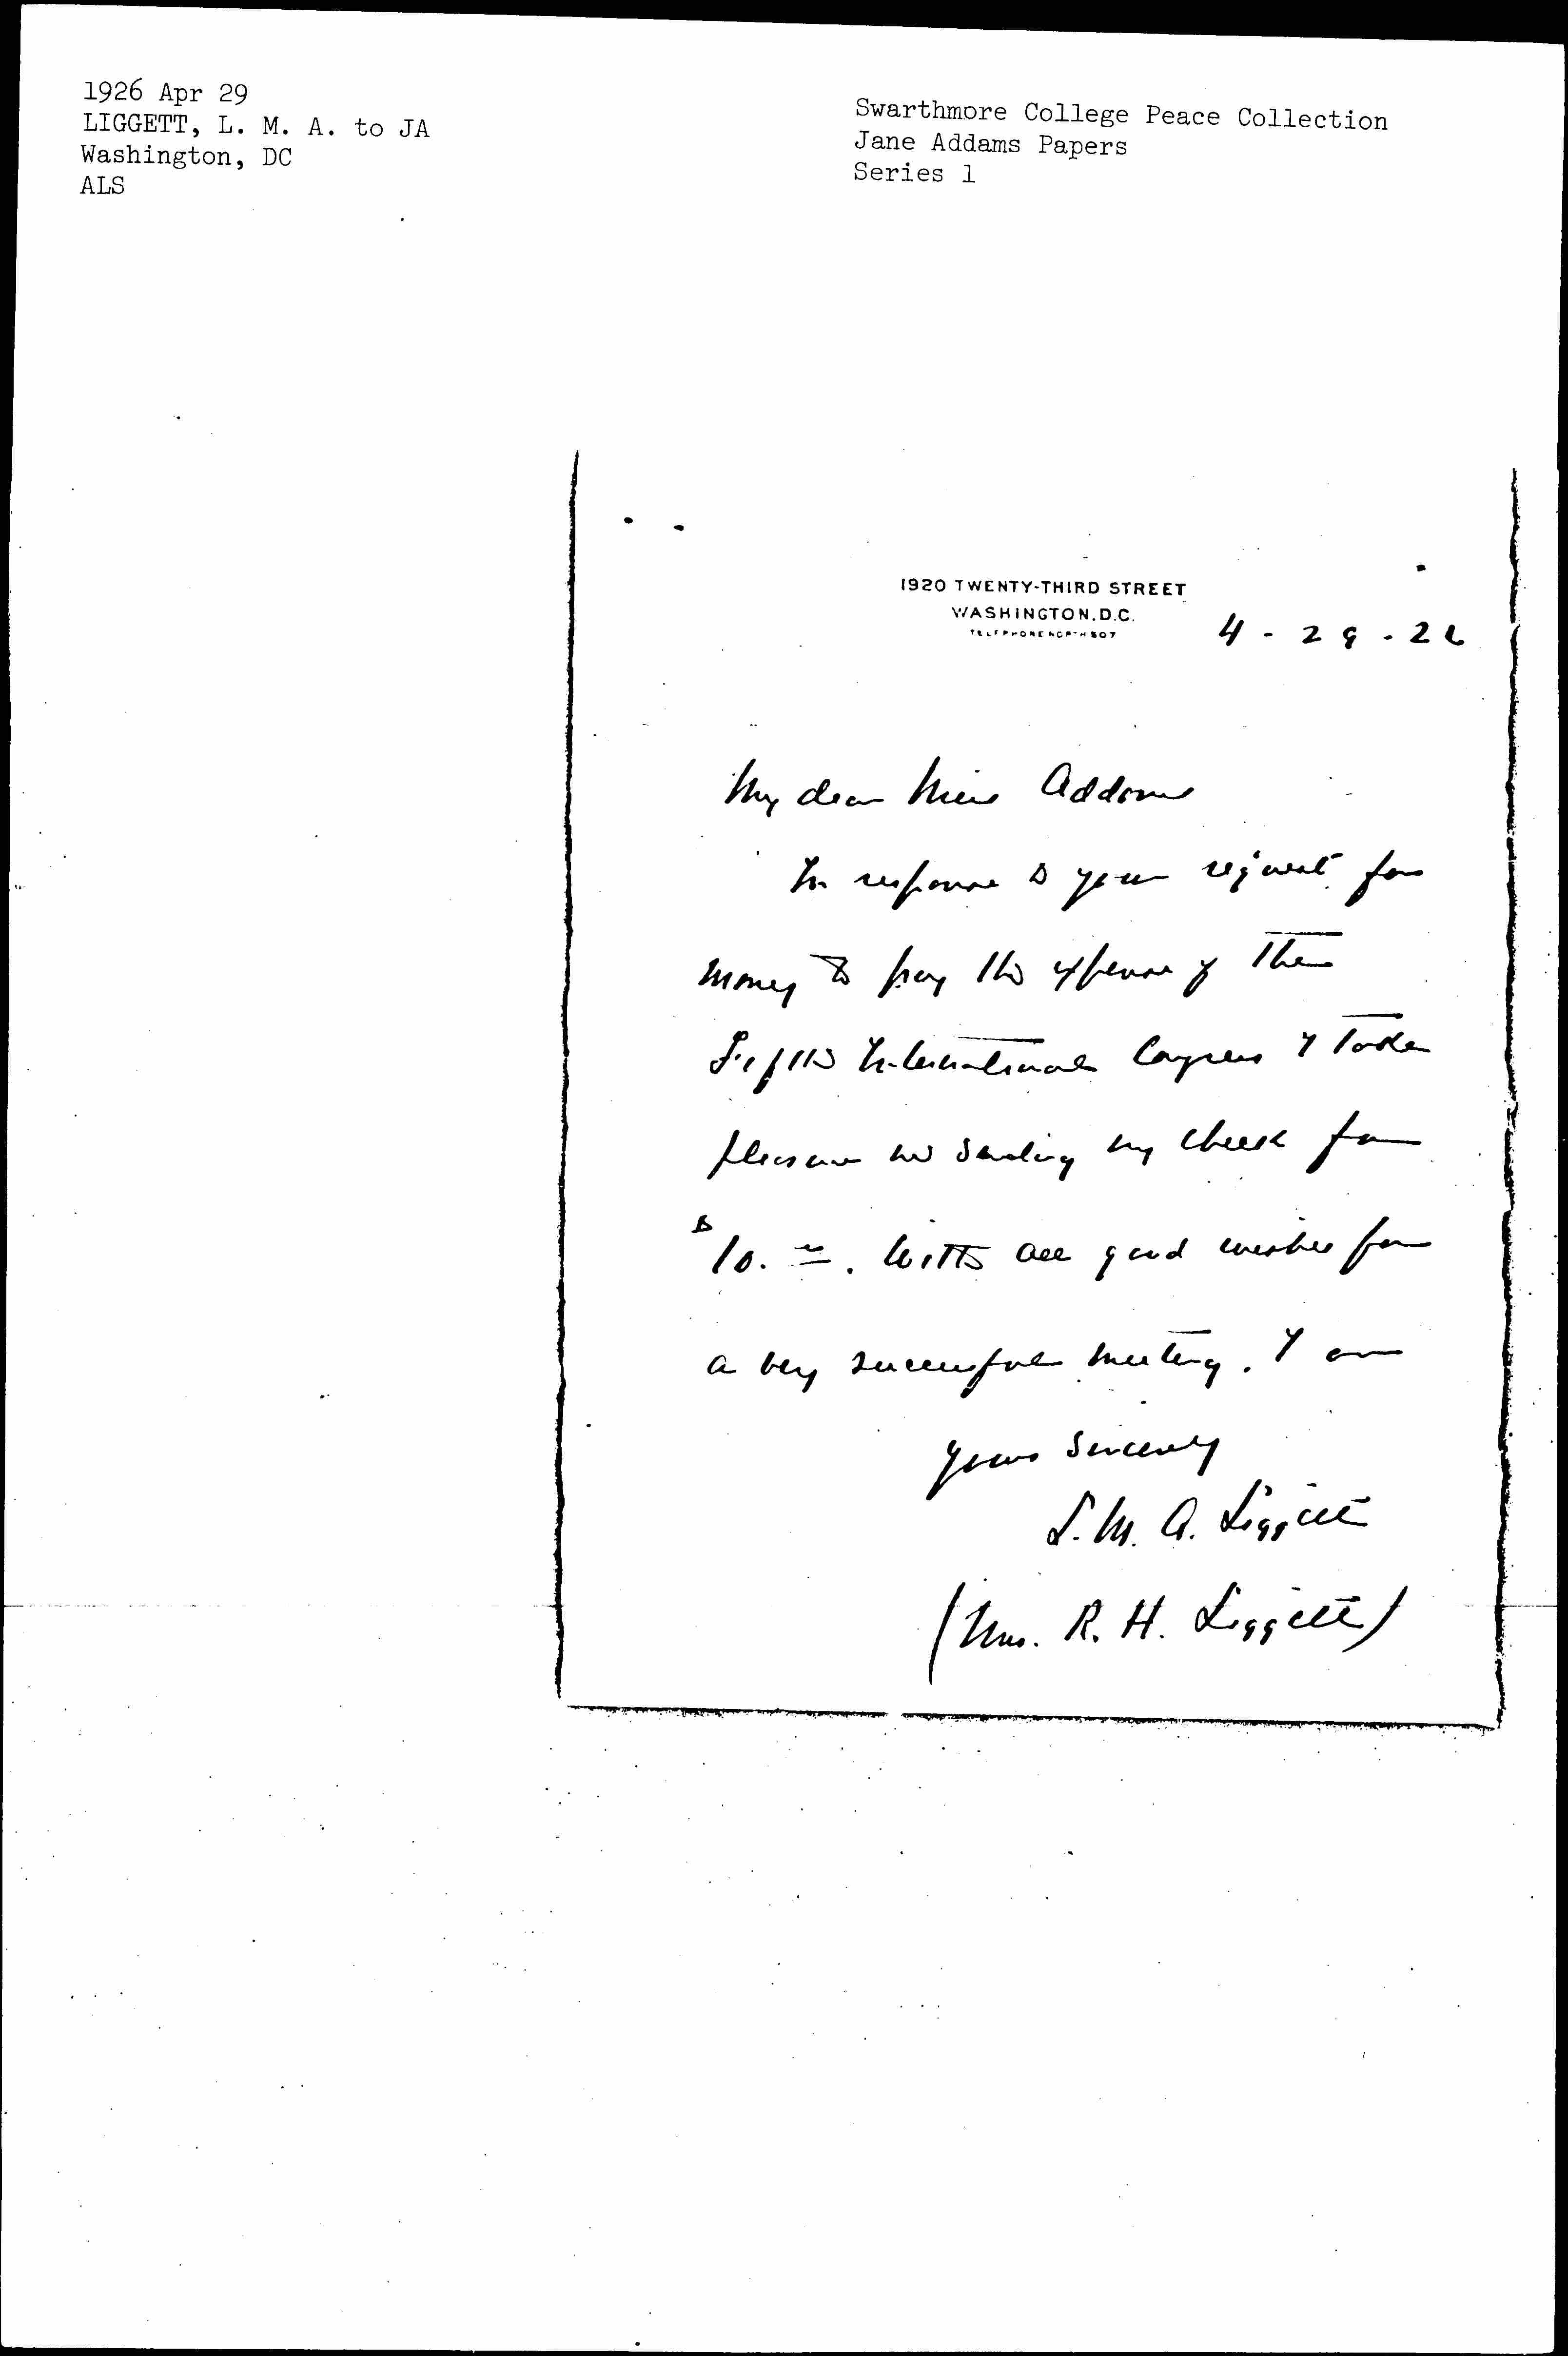 1926 Apr 29
LIGGETT, L. M. A. to JA
Washington, DC
ALS
Swarthmore College Peace Collection
Jane Addams Papers
Series 1
1920 TWENTY-THIRD STREET
WASHINGTON, D.C.
TELEPHONE NORTH 507
4 - 29 - 26
My dear Miss Addams
In response to your request for
money to pay the expense of the
Fifth International Congress I take
pleasure in sending my check for
$10.00. With all good wishes for
a very successful meeting, I am
yours sincerely
L. M. A. Liggett
(Mrs. R. H. Liggett)